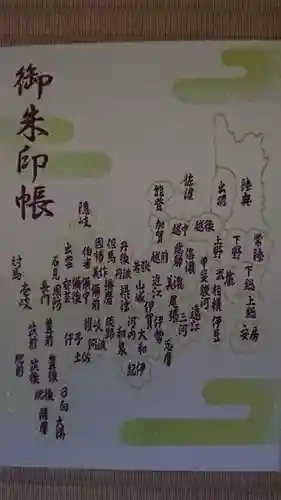 御朱印帳
陸奥
出羽
佐渡
能登
加賀
越中
越後
上野
下野
常陸
下総
上総
安房
武蔵
相模
伊豆
甲斐
駿河
遠江
三河
尾張
信濃
飛騨
美濃
越前
近江
伊賀
伊勢
志摩
若狭
山城
大和
紀伊
河内
和泉
摂津
丹後
丹波
但馬
播磨
淡路
因幡
美作
備前
伯耆
備中
備後
隠岐
出雲
安芸
石見
周防
長門
讃岐
阿波
土佐
伊予
対馬
壱岐
筑前
筑後
豊前
豊後
肥前
肥後
日向
大隅
薩摩